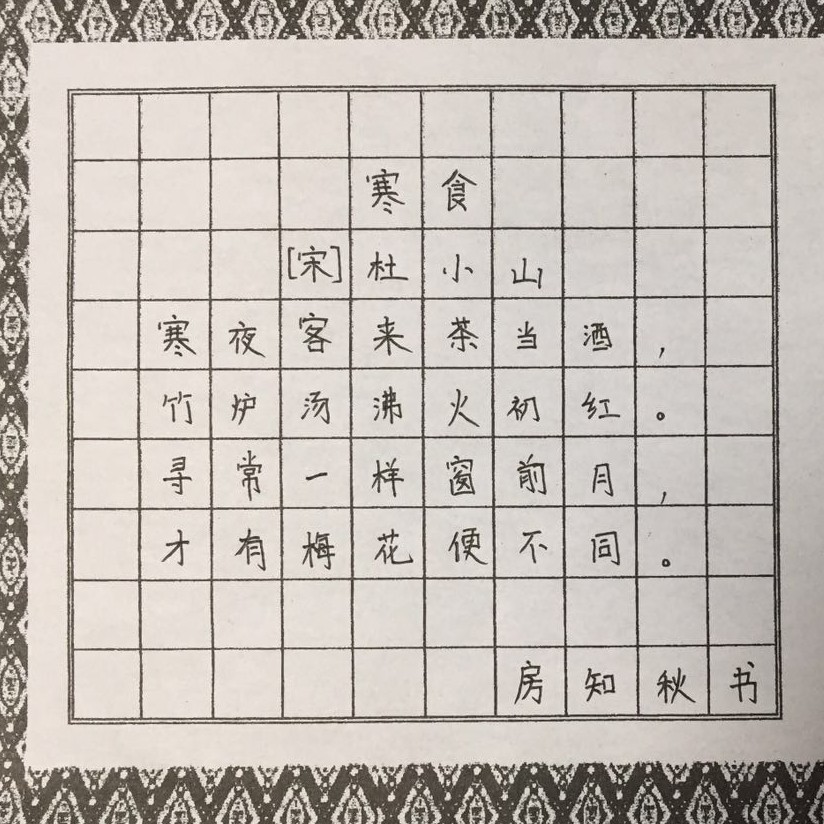 寒食
[宋]杜小山
寒夜客来茶当酒，
竹炉汤沸火初红。
寻常一样窗前月，
才有梅花便不同。
房知秋书